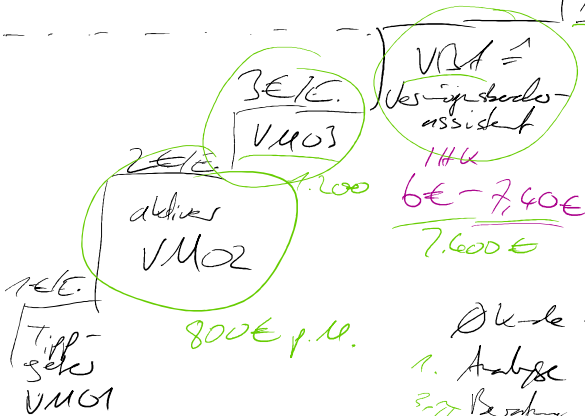 VBA ≙
Vermögensberater-
assistent
IHK
6€ - 7,40€
7.600€
3€/E.
VM03
1.200
2€/E.
aktiver
VM02
800€ p.M.
1€/E.
Tipp-
geber
VM01
Ø Kunde
1. Analyse
Beratung